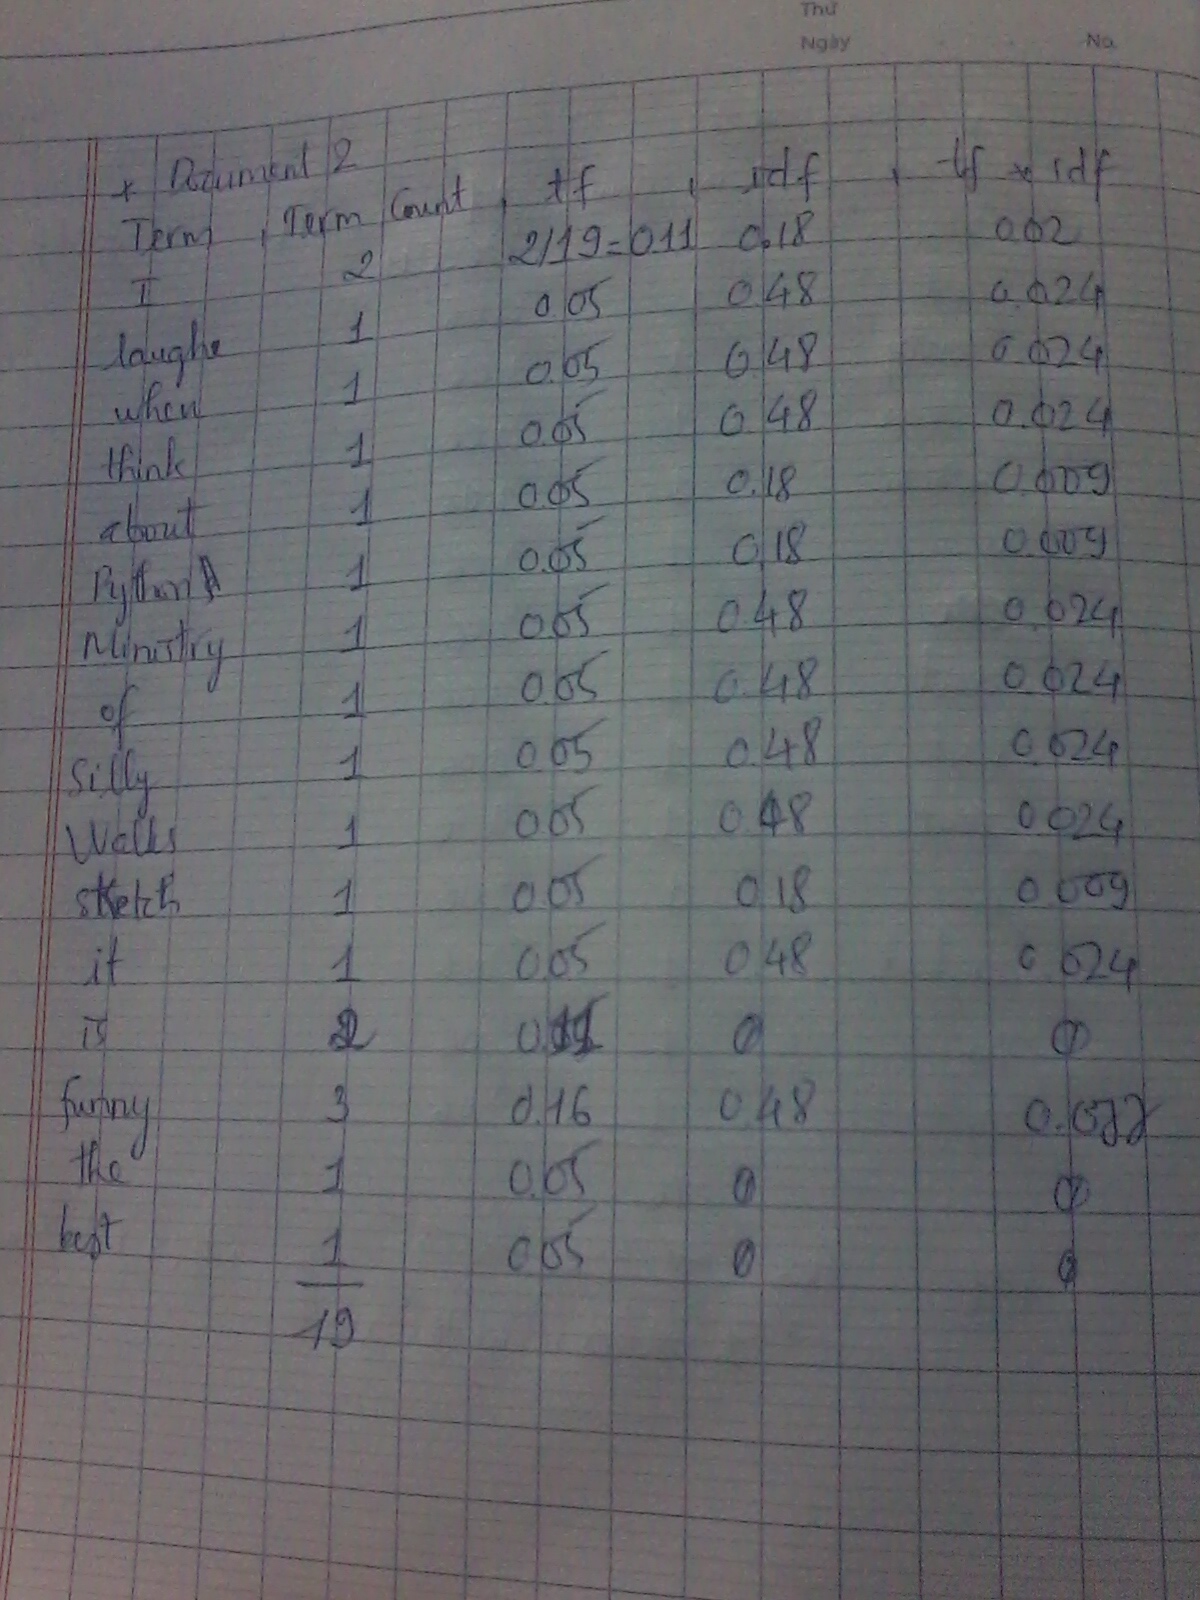 Thứ
Ngày No.
+ Document 2
Term, Term Count, tf, idf, tf x idf
I 2 2/19=0.11 0.18 0.02
laughe 1 0.05 0.48 0.024
when 1 0.05 0.48 0.024
think 1 0.05 0.48 0.024
about 1 0.05 0.18 0.009
Python 1 0.05 0.18 0.009
Ministry 1 0.05 0.48 0.024
of 1 0.05 0.48 0.024
Silly 1 0.05 0.48 0.024
Walks 1 0.05 0.48 0.024
sketch 1 0.05 0.18 0.009
it 1 0.05 0.48 0.024
is 2 0.11 0 0
funny 3 0.16 0.48
the 1 0.05 0 0
best 1 0.05 0 0
19